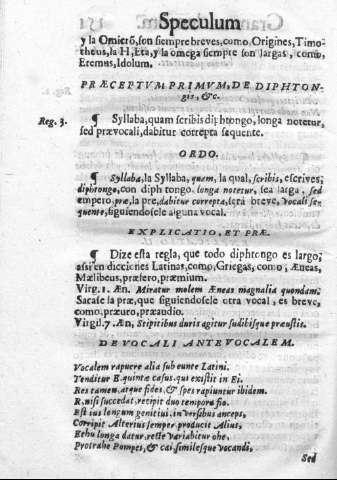 Speculum
y la Omicrō, son siempre breves, como, Origines, Timo-
theus, la H, Eta, y la omega siempre son largas, como,
Eremus, Idolum.
PRÆCEPTVM PRIMVM, DE DIPHTON-
gis, &c.
Reg. 3. ¶ Syllaba, quam scribis diphtongo, longa notetur,
sed prævocali, dabitur correpta sequente.
ORDO.
¶ Syllaba, la Syllaba, quam, la qual, scribis, escrives,
diphtongo, con diphtongo, longa notetur, sea larga, sed
empero, præ, la pre, dabitur correpta, será breve, vocali se-
quente, siguiendosele alguna vocal.
EXPLICATIO, ET PRÆ.
¶ Dize esta regla, que todo diphtongo es largo,
assi en dicciones Latinas, como, Griegas, como, Æneas,
Mælibeus, præfero, præmium.
Virg. 1. Æn. Miratur molem Æneas magnalia quondam.
Sacase la præ, que siguiendosele otra vocal, es breve,
como, præuro, præaudio.
Virgil. 7. Æn. Stipitibus duris agitur sudibusque præustis.
DE VOCALI ANTE VOCALEM.
Vocalem rapuere alia subeunte Latini.
Tenditur E. quintæ casus, qui existit in Ei.
Res tamen, atque fides, & spes rapiuntur ibidem.
R. nisi succedat, recipit duo tempora fio.
Est ius longum genitiui, in versibus anceps,
Corripit Alterius semper, producit Alius,
Eheu longa datur, recte variabitur ohe,
Protrahe Pompei, & cai similesque vocandi,
Sed